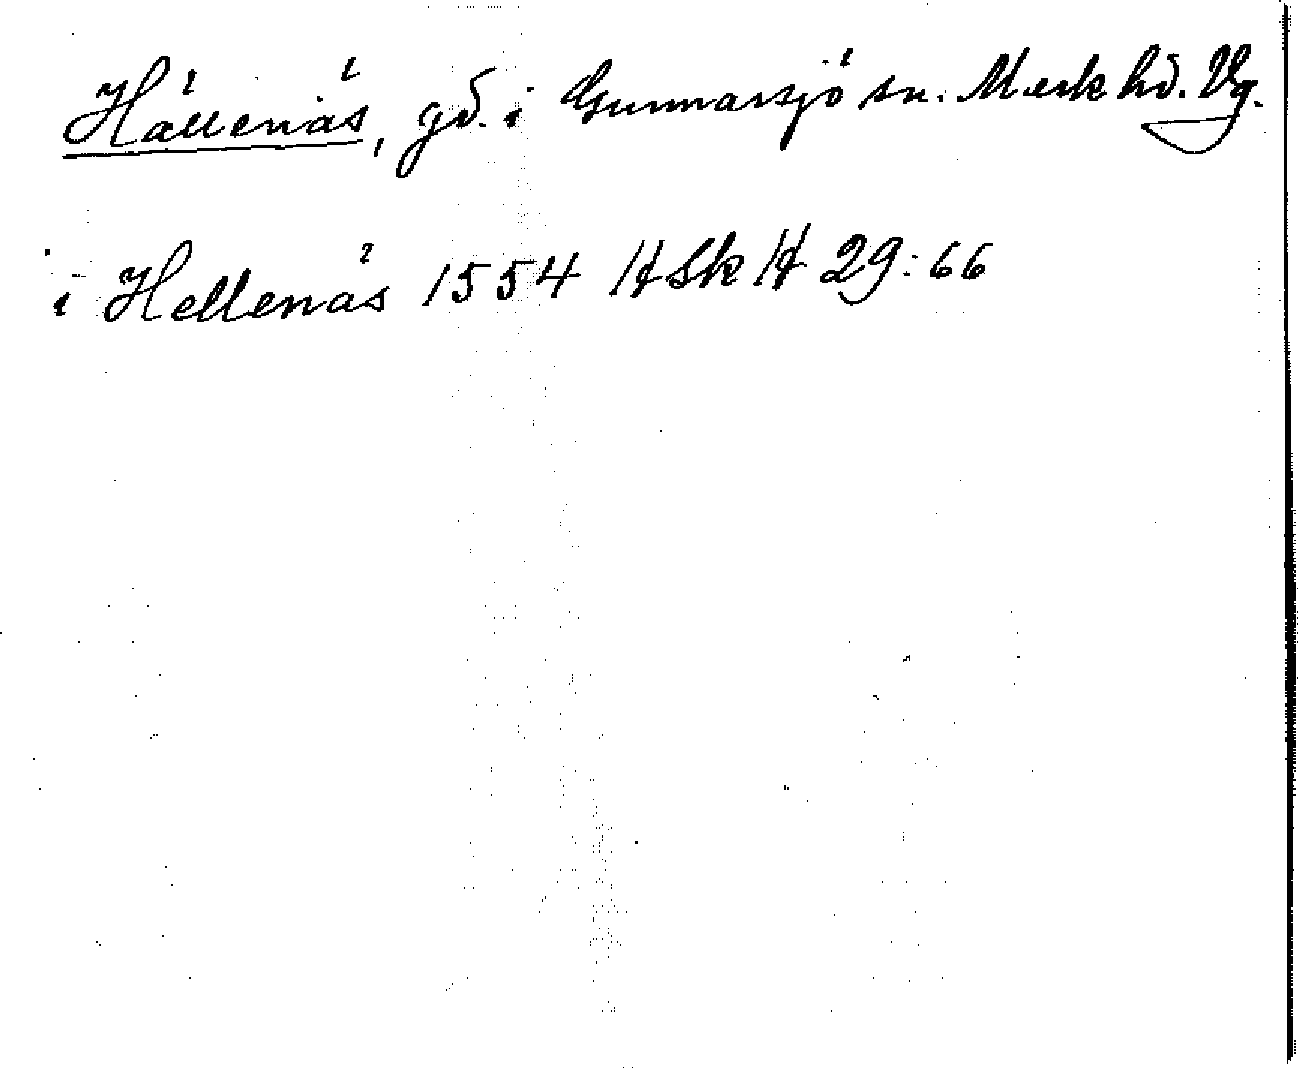 Hällenäs, gd. i Gunnarsjö sn. Mark hd. Vg.
i Hellenäs 1554 HSkH 29:66